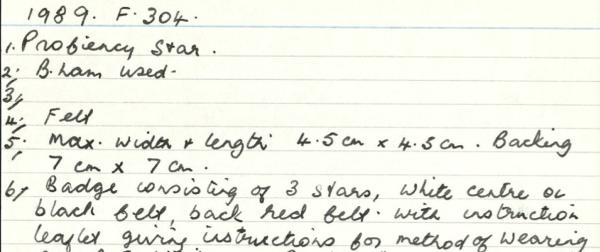 1989. F. 304.
1. Profiency Star.
2. B.ham used.
3,
4. Felt
5. Max. width & length 4.5 cm x 4.5 cm. Backing
7 cm x 7 cm.
6, Badge consisting of 3 stars, white centre on
black felt, back red felt. with instruction
leaflet giving instructions for method of wearing